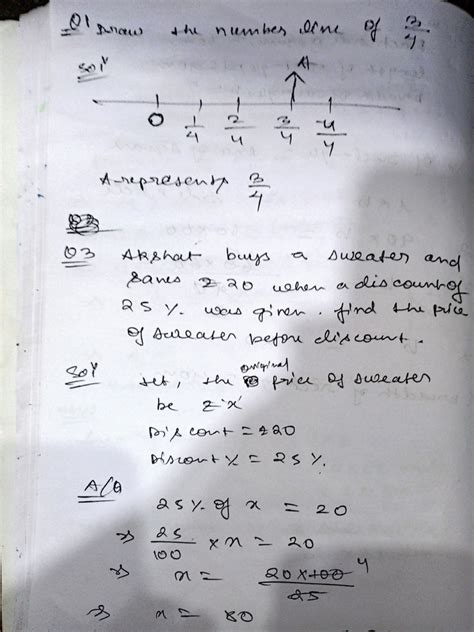 Q1 Draw the number line of 3/4
Sol^n
A
0 1/4 2/4 3/4 4/4
A represents 3/4
Q3 Akshat buys a sweater and
saves ₹20 when a discount of
25 %. was given. find the price
of sweater before discount.
Sol^n Let, the original price of sweater
be ₹ x
Discount = ₹20
Discount % = 25 %.
A/Q
25 %. of x = 20
⇒ 25/100 × x = 20
⇒ x = 20 × 100/25 4
⇒ x = 80